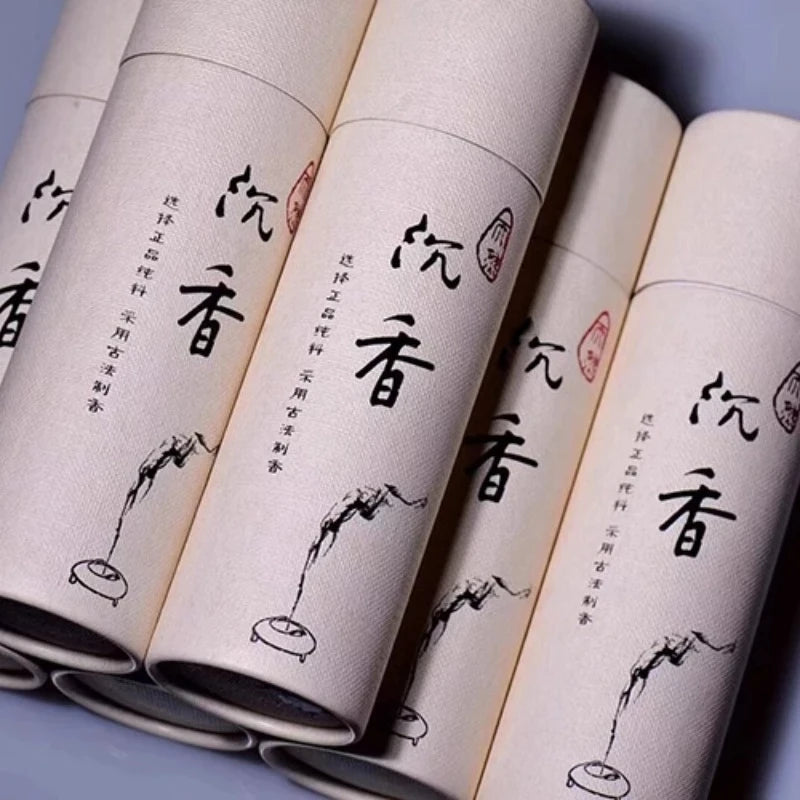 沉香
选择正品纯料 采用古法制香
沉香
选择正品纯料 采用古法制香
沉香
沉香
选择正品纯料 采用古法制香
沉香